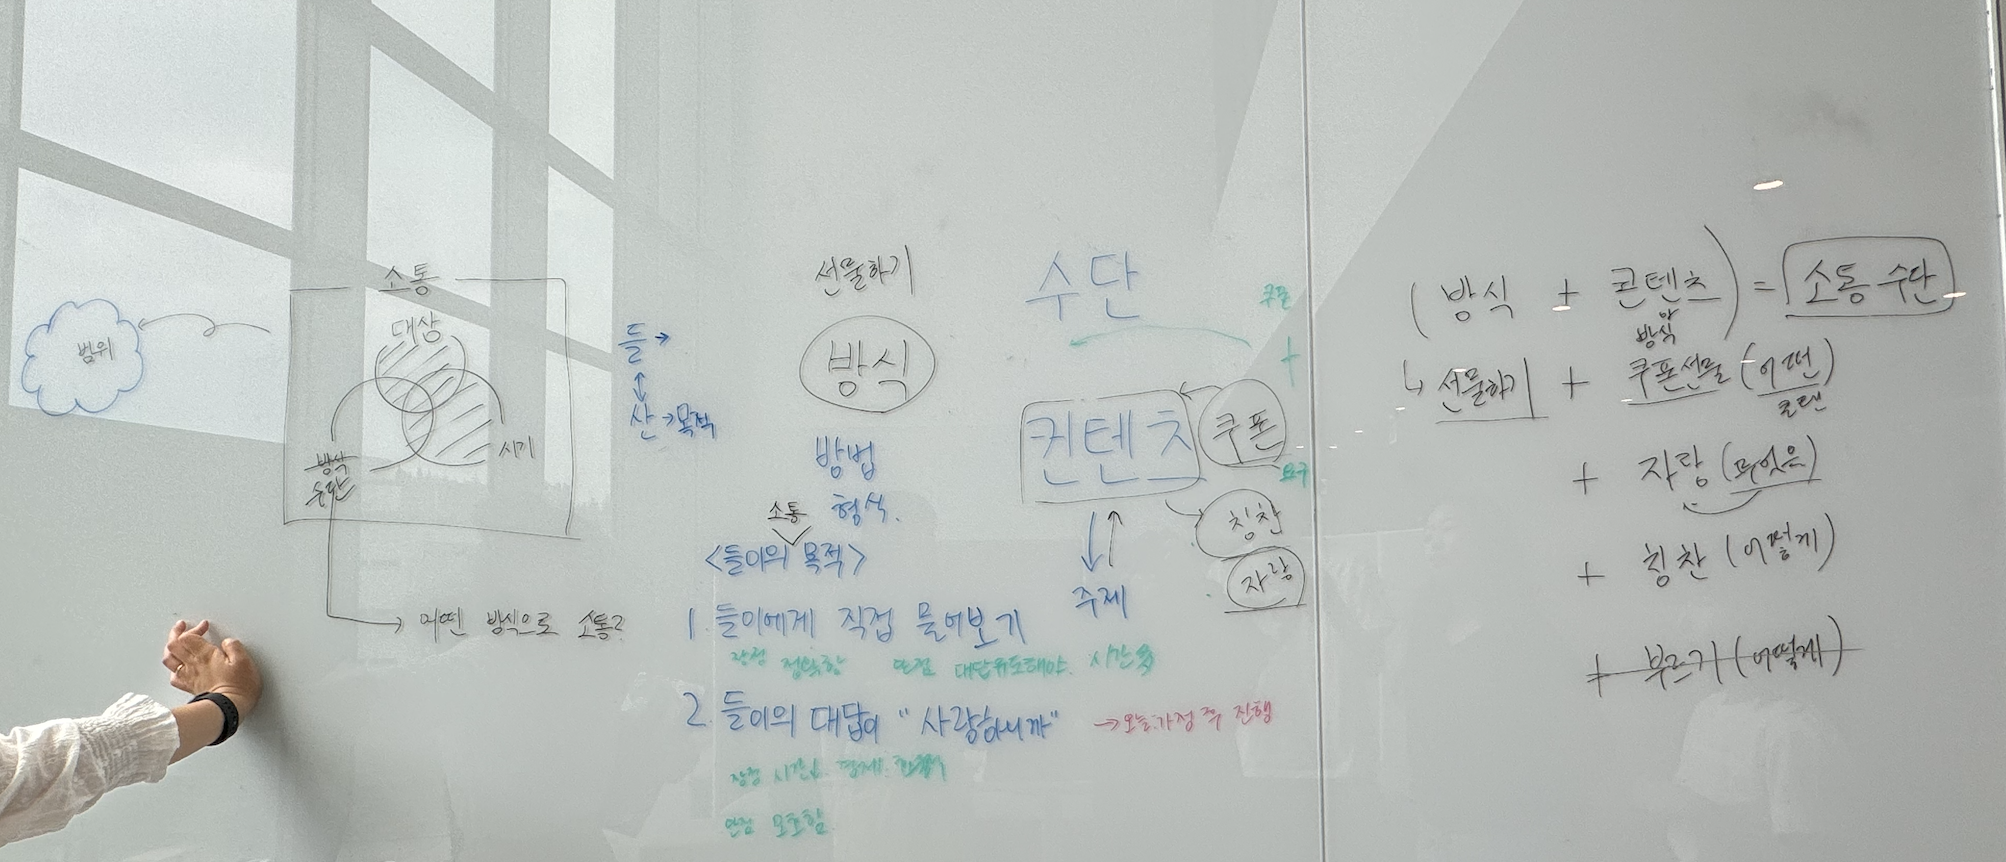 소통
대상
범위
시기
방식
어떤 방식으로 소통?
들 →
산 → 목적
선물하기
방식
방법
형식.
소통
<들이의 목적>
1. 들이에게 직접 물어보기
장점 정확함 단점 대답유도해야. 시간多
2. 들이의 대답이 "사랑하니까"
→ 오늘. 가정 후 진행
장점 시간
단점 모호함
수단
쿠폰
+
컨텐츠
쿠폰
요구
칭찬
자랑
주제
(방식 + 콘텐츠) = 소통 수단
방식
↳ 선물하기 + 쿠폰선물 (어떤)
+ 자랑 (무엇을)
+ 칭찬 (어떻게)
+ 부르기 (어떻게)